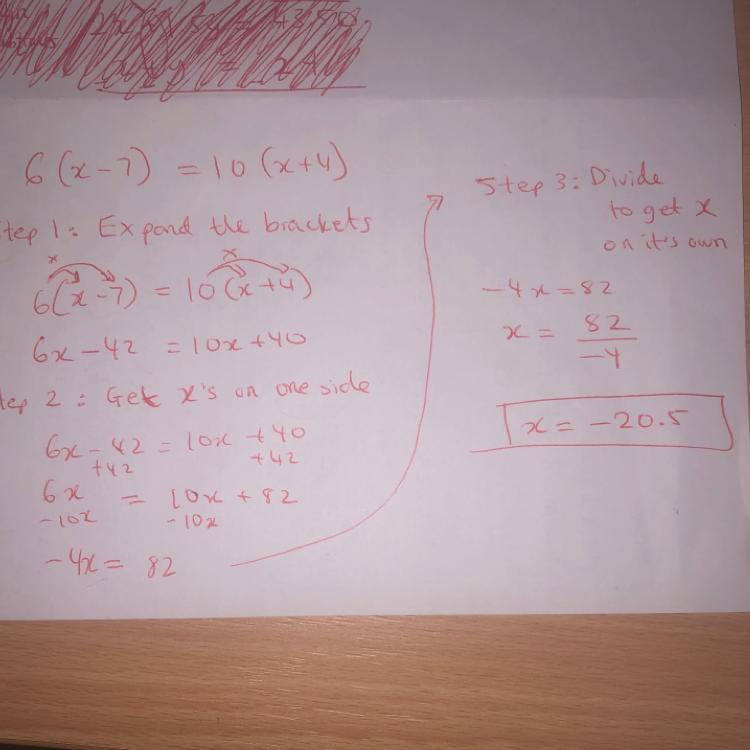 6(x-7) = 10(x+4)
tep 1: Expand the brackets
x x
6(x-7) = 10(x+4)
6x-42 = 10x+40
tep 2: Get x's on one side
6x-42 = 10x+40
+42 +42
6x = 10x+82
-10x -10x
-4x = 82
Step 3: Divide
to get x
on it's own
-4x = 82
x = 82/-4
x = -20.5